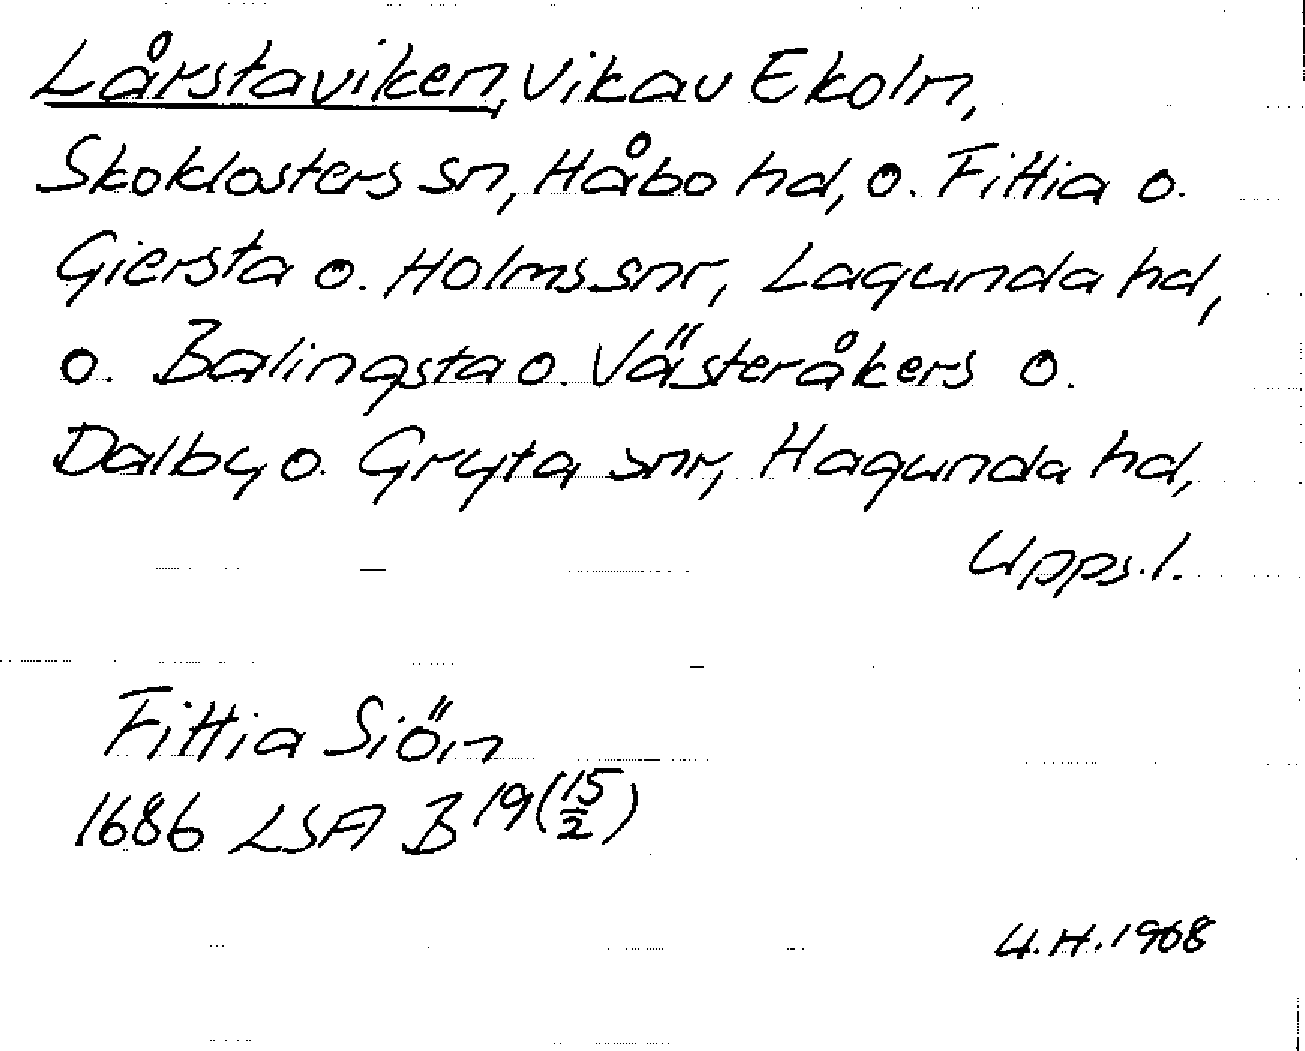 Lårstaviken, vik av Ekoln,
Skoklosters sn, Håbo hd, o. Fittia o.
Giersta o. Holms snr, Lagunda hd,
o. Balingsta o. Västeråkers o.
Dalby o. Gryta snr, Hagunda hd,
Upps. l.
Fittia Siön
1686 LSA B 19 (15/2)
U.H. 1968